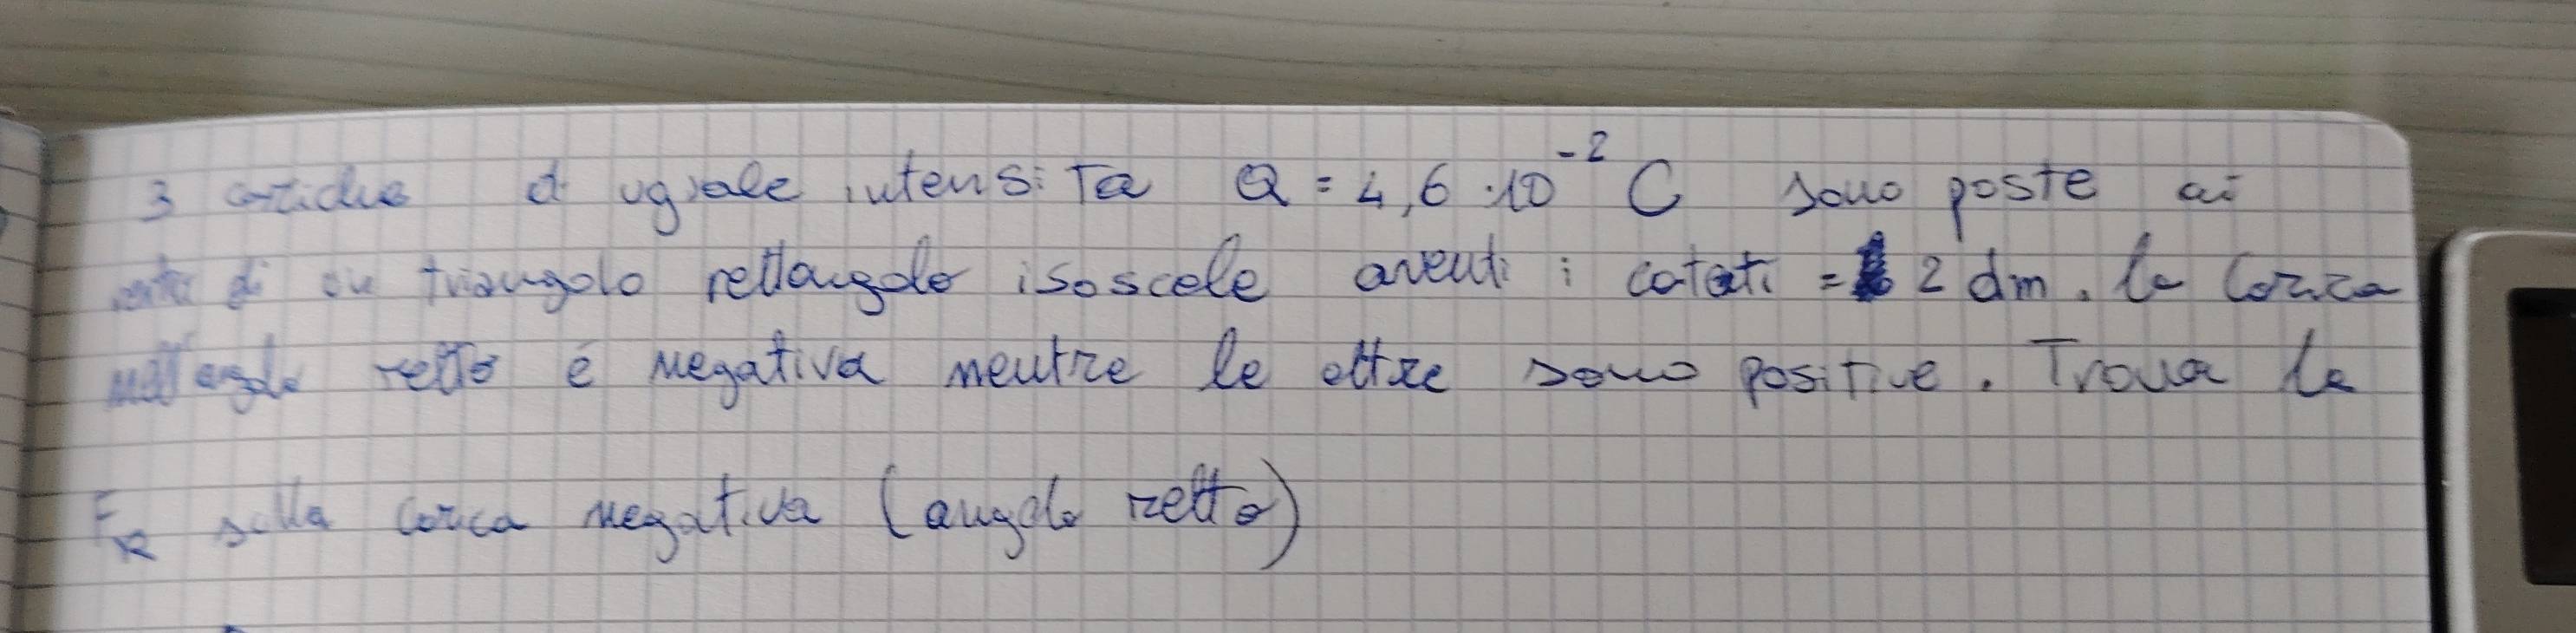 3 cariche di uguale intensità Q = 4,6 · 10⁻² C sono poste ai
di un triangolo rettangolo isoscele aventi i cateti = 2 dm. la carica
nell'angolo retto é negativa mentre le altre sono positive. Trova la
F_R sulla carica negativa (angolo retto)